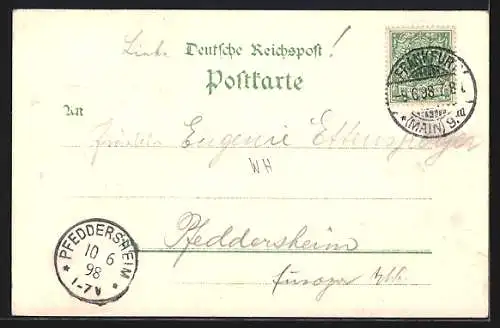 Liebe Deutsche Reichspost!
Postkarte
An
Fräulein Eugenie
WH
Pfeddersheim
FRANKFURT
6 98
*(MAIN) 9.
PFEDDERSHEIM
10 6
98
1-7V